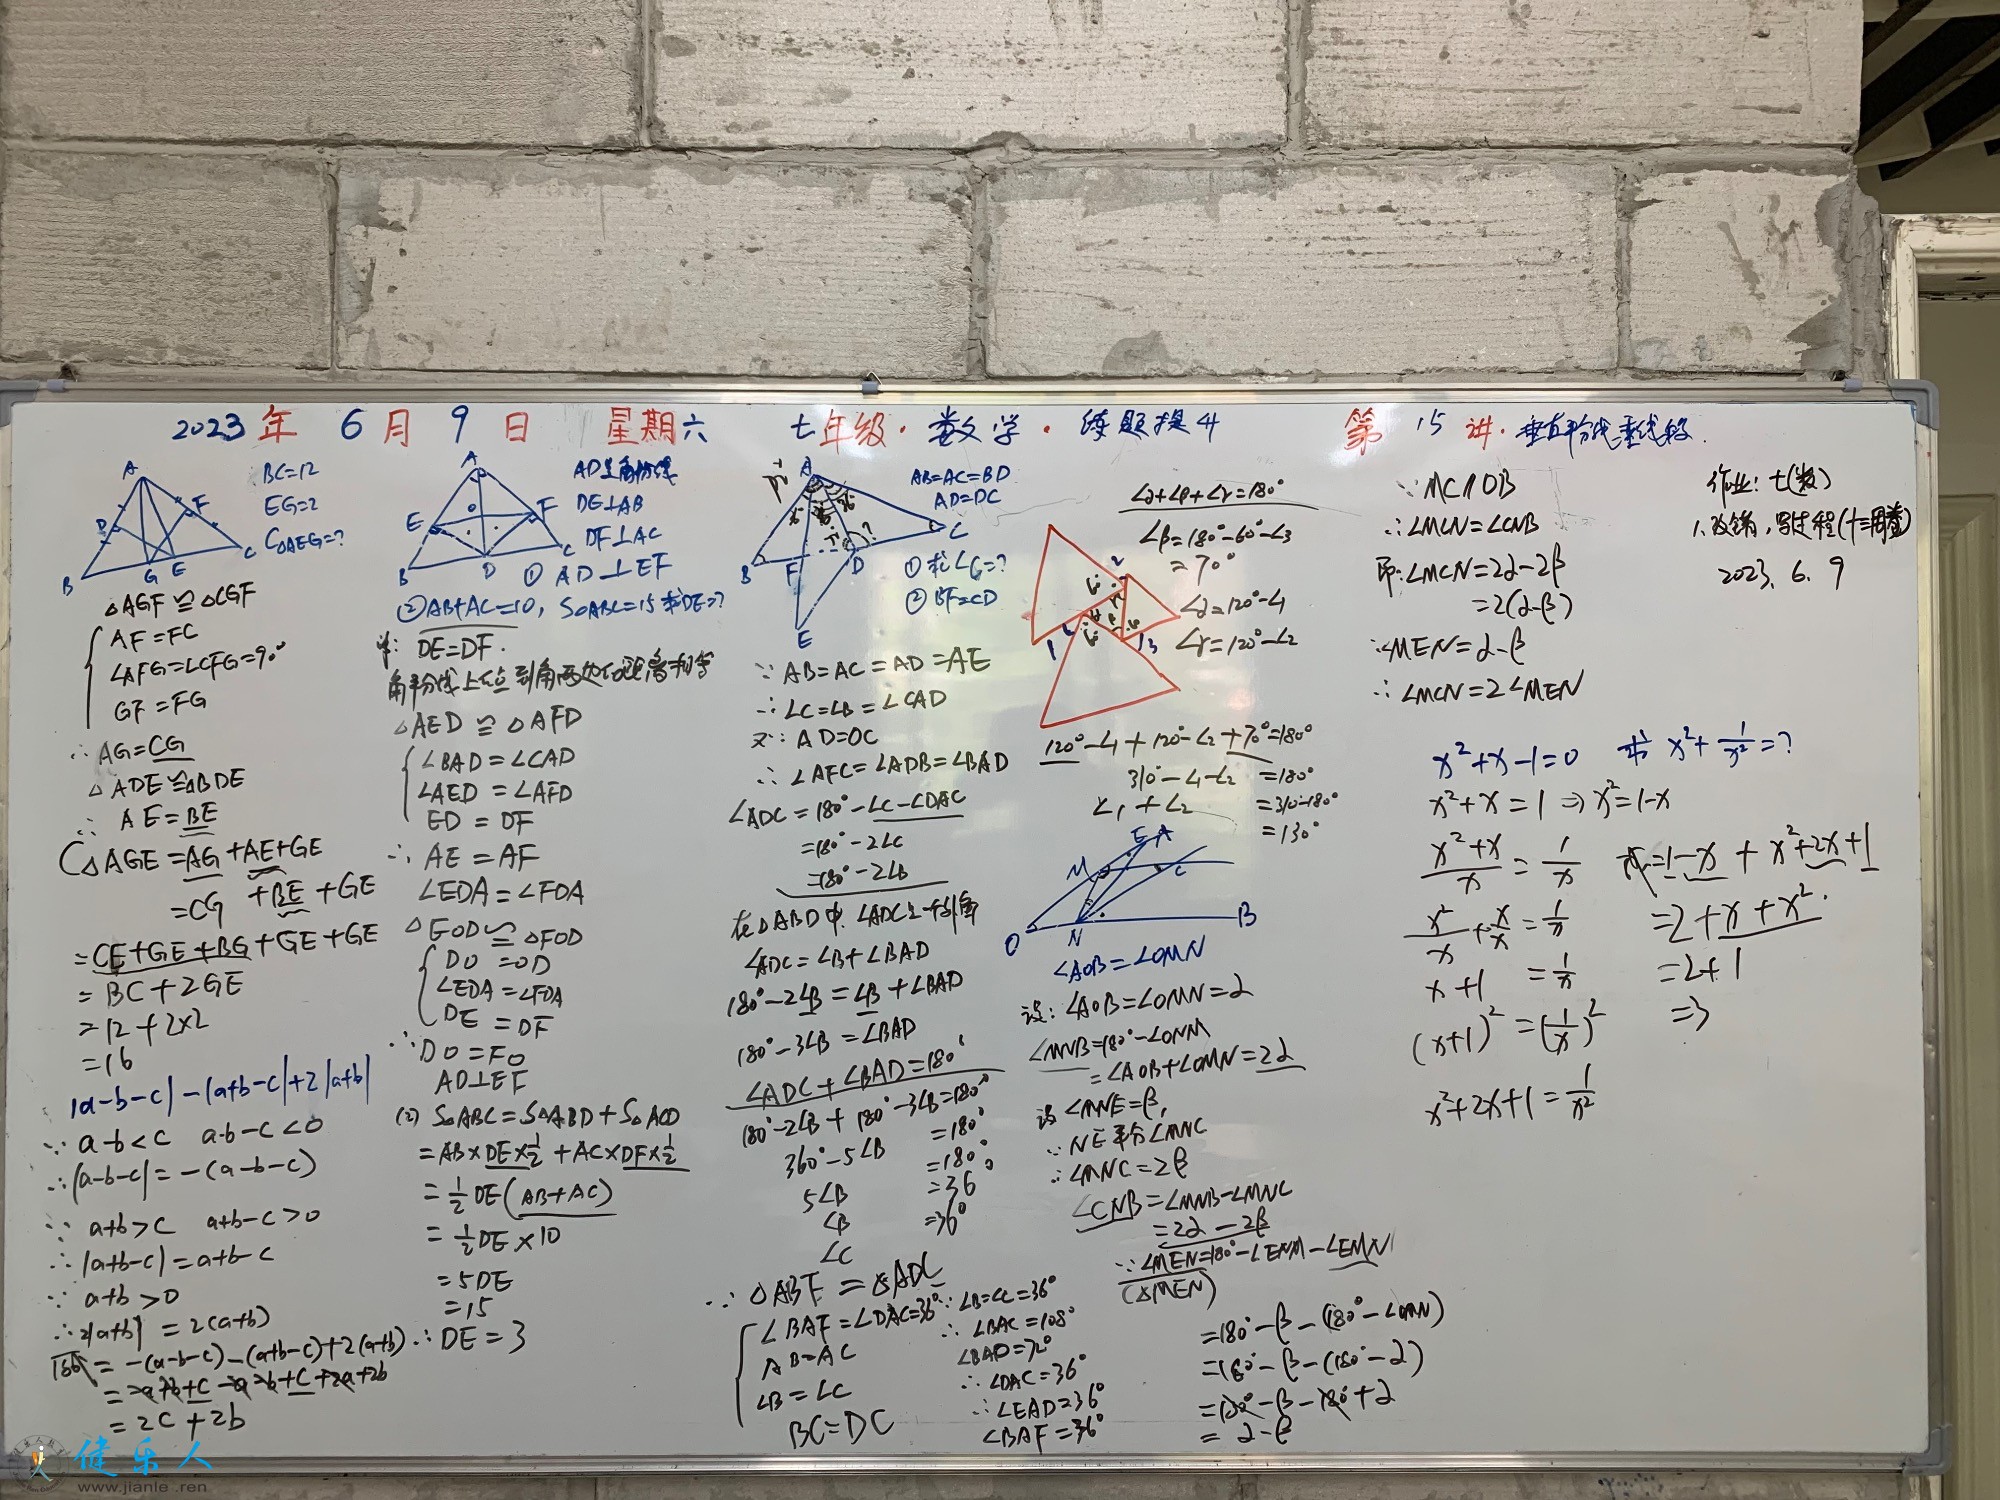 2023年 6月 9日 星期六 七年级·数学·练题提升 第 15 讲·垂直平分线垂线段
A
D
F
B
G
E
C
BC=12
EG=2
C△AEG=?
△AGF≌△CGF
AF=FC
∠AFG=∠CFG=90°
GF=FG
∴AG=CG
△ADE≌△BDE
∴AE=BE
C△AGE=AG+AE+GE
=CG+BE+GE
=CE+GE+BG+GE+GE
=BC+2GE
=12+2×2
=16
|a-b-c|-|a+b-c|+2|a+b|
∵a-b<c a-b-c<0
∴|a-b-c|=-(a-b-c)
∵a+b>c a+b-c>0
∴|a+b-c|=a+b-c
∵a+b>0
∴2|a+b|=2(a+b)
=-(a-b-c)-(a+b-c)+2(a+b)
=-a+b+c-a-b+c+2a+2b
=2c+2b
A
E
O
F
B
D
C
AD是角平分线
DE⊥AB
DF⊥AC
① AD⊥EF
②AB+AC=10, S△ABC=15求DE=?
DE=DF.
角平分线上的点到角两边的距离相等
△AED≌△AFD
∠BAD=∠CAD
∠AED=∠AFD
ED=DF
∴AE=AF
∠EDA=∠FDA
△EOD≌△FOD
DO=OD
∠EDA=∠FDA
DE=DF
∴DO=FO
AD⊥EF
(2) S△ABC=S△ABD+S△ACD
=AB×DE×½+AC×DF×½
=½DE(AB+AC)
=½DE×10
=5DE
=15
∴DE=3
A
B
F
D
C
E
?
AB=AC=BD
AD=DC
①求∠C=?
② BF=CD
∵AB=AC=AD=AE
∴∠C=∠B=∠CAD
又∵AD=DC
∴∠AFC=∠ADB=∠BAD
∠ADC=180°-∠C-∠DAC
=180°-2∠C
=180°-2∠B
在△ABD中,∠ADC是一个外角
∠ADC=∠B+∠BAD
180°-2∠B=∠B+∠BAD
180°-3∠B=∠BAD
∠ADC+∠BAD=180°
180°-2∠B+180°-3∠B=180°
360°-5∠B=180°
5∠B=180°
∠B=36
∠C=36°
∴△ABF≌△ADC
∠BAF=∠DAC=36°
AB=AC
∠B=∠C
BC=DC
∵∠B=∠C=36°
∴∠BAC=108°
∠BAD=72°
∴∠DAC=36°
∴∠EAD=36°
∠BAF=36°
∠α+∠β+∠γ=180°
∠β=180°-60°-∠3
=70°
∠α=120°-∠1
∠γ=120°-∠2
1
2
3
120°-∠1+120°-∠2+70°=180°
310°-∠1-∠2=180°
∠1+∠2=310-180°
=130°
E
A
M
C
O
N
B
∠AOB=∠OMN
设:∠AOB=∠OMN=α
∠MNB=180°-∠ONM
=∠AOB+∠OMN=2α
设∠MNE=β,
∵NE平分∠MNC
∴∠MNC=2β
∠CNB=∠MNB-∠MNC
=2α-2β
∵∠MEN=180°-∠ENM-∠EMN
(△MEN)
=180°-β-(180°-∠OMN)
=180°-β-(180°-α)
=180°-β-180°+α
=α-β
∵MC∥OB
∴∠MCN=∠CNB
即:∠MCN=2α-2β
=2(α-β)
∵∠MEN=α-β
∴∠MCN=2∠MEN
x²+x-1=0 求 x²+1/x²=?
x²+x=1⇒x²=1-x
(x²+x)/x=1/x
x²/x+x/x=1/x
x+1=1/x
(x+1)²=(1/x)²
x²+2x+1=1/x²
原=1-x+x²+2x+1
=2+x+x²
=2+1
=3
作业:七(数)
1.改错,写过程(十三周卷)
2023.6.9
健乐人
www.jianle.ren